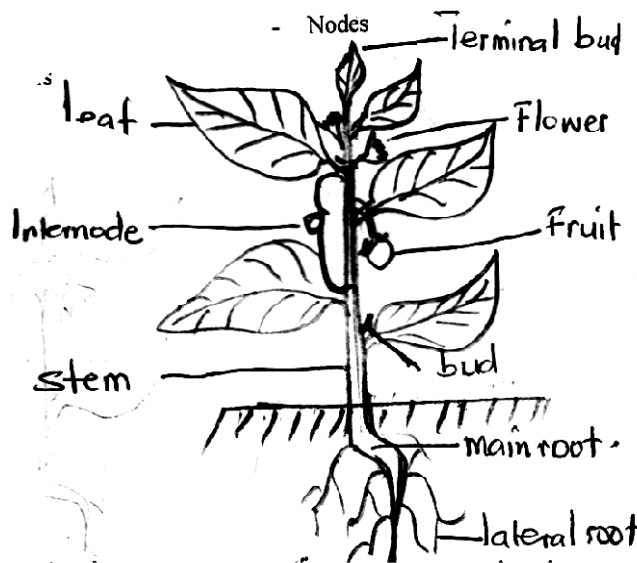 - Nodes
Terminal bud
leaf
Flower
Internode
Fruit
bud
stem
main root.
lateral root